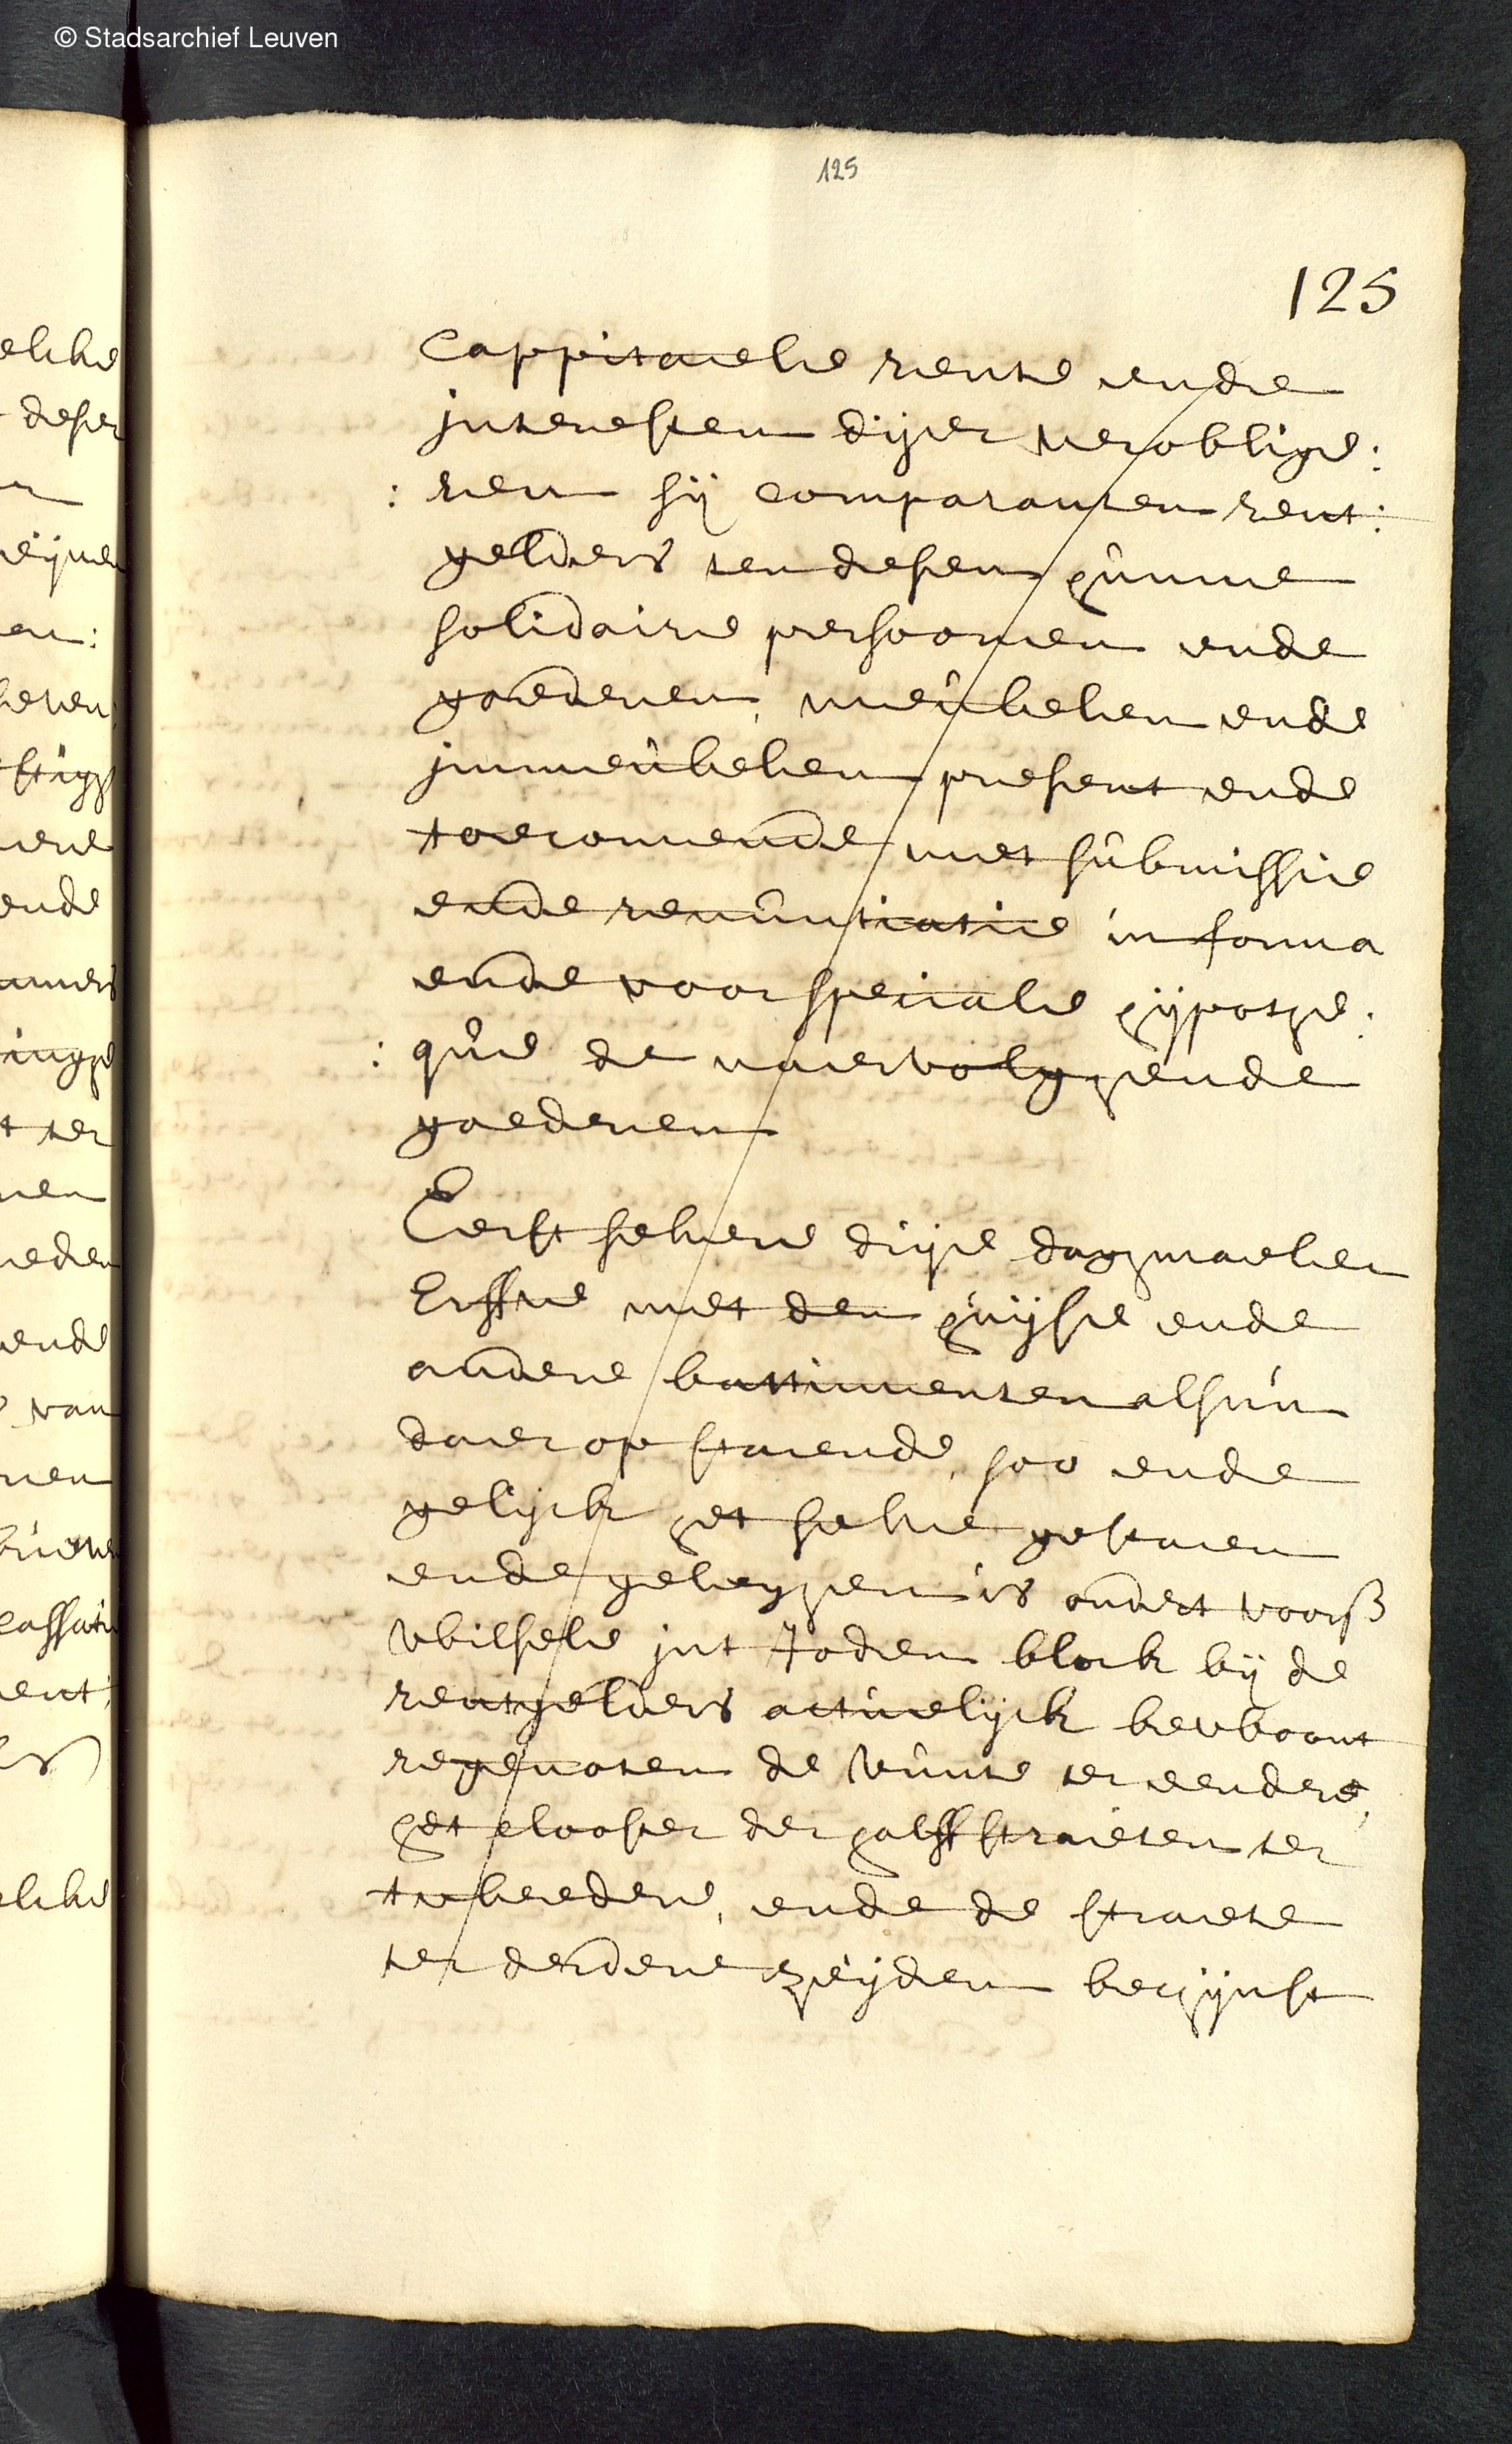 © Stadsarchief Leuven
125
125
Cappitaele rente ende
interesten dijer veroblige:
: ren sij comparanten rent:
gelders ten desen hunne
solidaire persoonen ende
goederen, meubelen ende
immeubelen present ende
toecomende met submissie
ende renuntiatie in forma
ende voor speciale hijpothe:
: que de naervolghende
goederen
Eerst selvere drije daghmaelen
Erffve met den huijse ende
andere battimenten alsnu
daer op staende, soo ende
gelijck het selve gestaen
ende geleghen is onder t voors
Wilsele int Joden block bij de
rentgelders actuelijck bewoont
regenoten de Vunte ter eendere,
het clooster der halffstraeten ter
tweedere, ende de straete
ter derdere zeijden becijnst
elcke
deser
ende
van